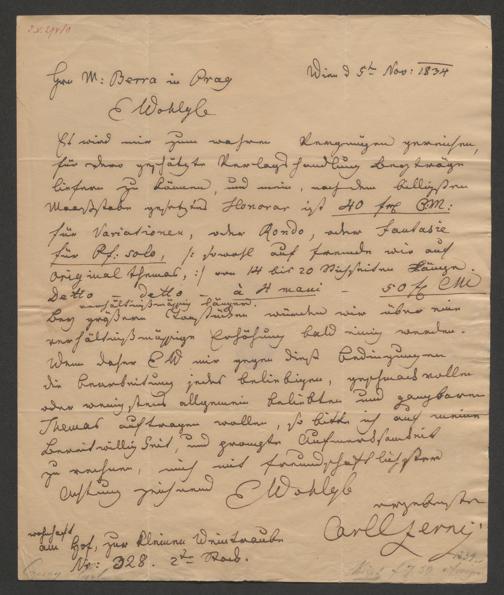 Hrn M: Berra in Prag
Wien d 5t Nov: 1834
E Wohlgb
Es wird mir zum wahren Vergnügen gereichen,
für dero geschätzte Verlagshandlung Beyträge
liefern zu können, und mein, nach dem billigsten
Maasstabe gesetztes Honorar ist 40 f CM:
für Variationen, oder Rondo, oder Fantasie
für Pf: solo, /: sowohl auf fremde wie auf
Original themas, :/ von 14 bis 20 Stichseiten Länge.
Detto - detto - à 4 mani - 50 f CM
verhältnißmässig längern.
Bey größern Tonstücken würden wir über eine
verhältnißmässige Erhöhung bald einig werden.
Wenn daher EW mir gegen diese Bedingungen
die Bearbeitung jedes beliebigen, geschmackvollen
oder wenigstens allgemein beliebten und gangbaren
Themas auftragen wollen, so bitte ich auf meine
Bereitwilligkeit, und prompte Aufmerksamkeit
zu rechnen, mich mit freundschaftlichster
Achtung zeichnend E Wohlgb
ergebenster
Carl Czerny
wohnhaft
am Hof, zur kleinen Weintraube
No: 328. 2ten Stock.